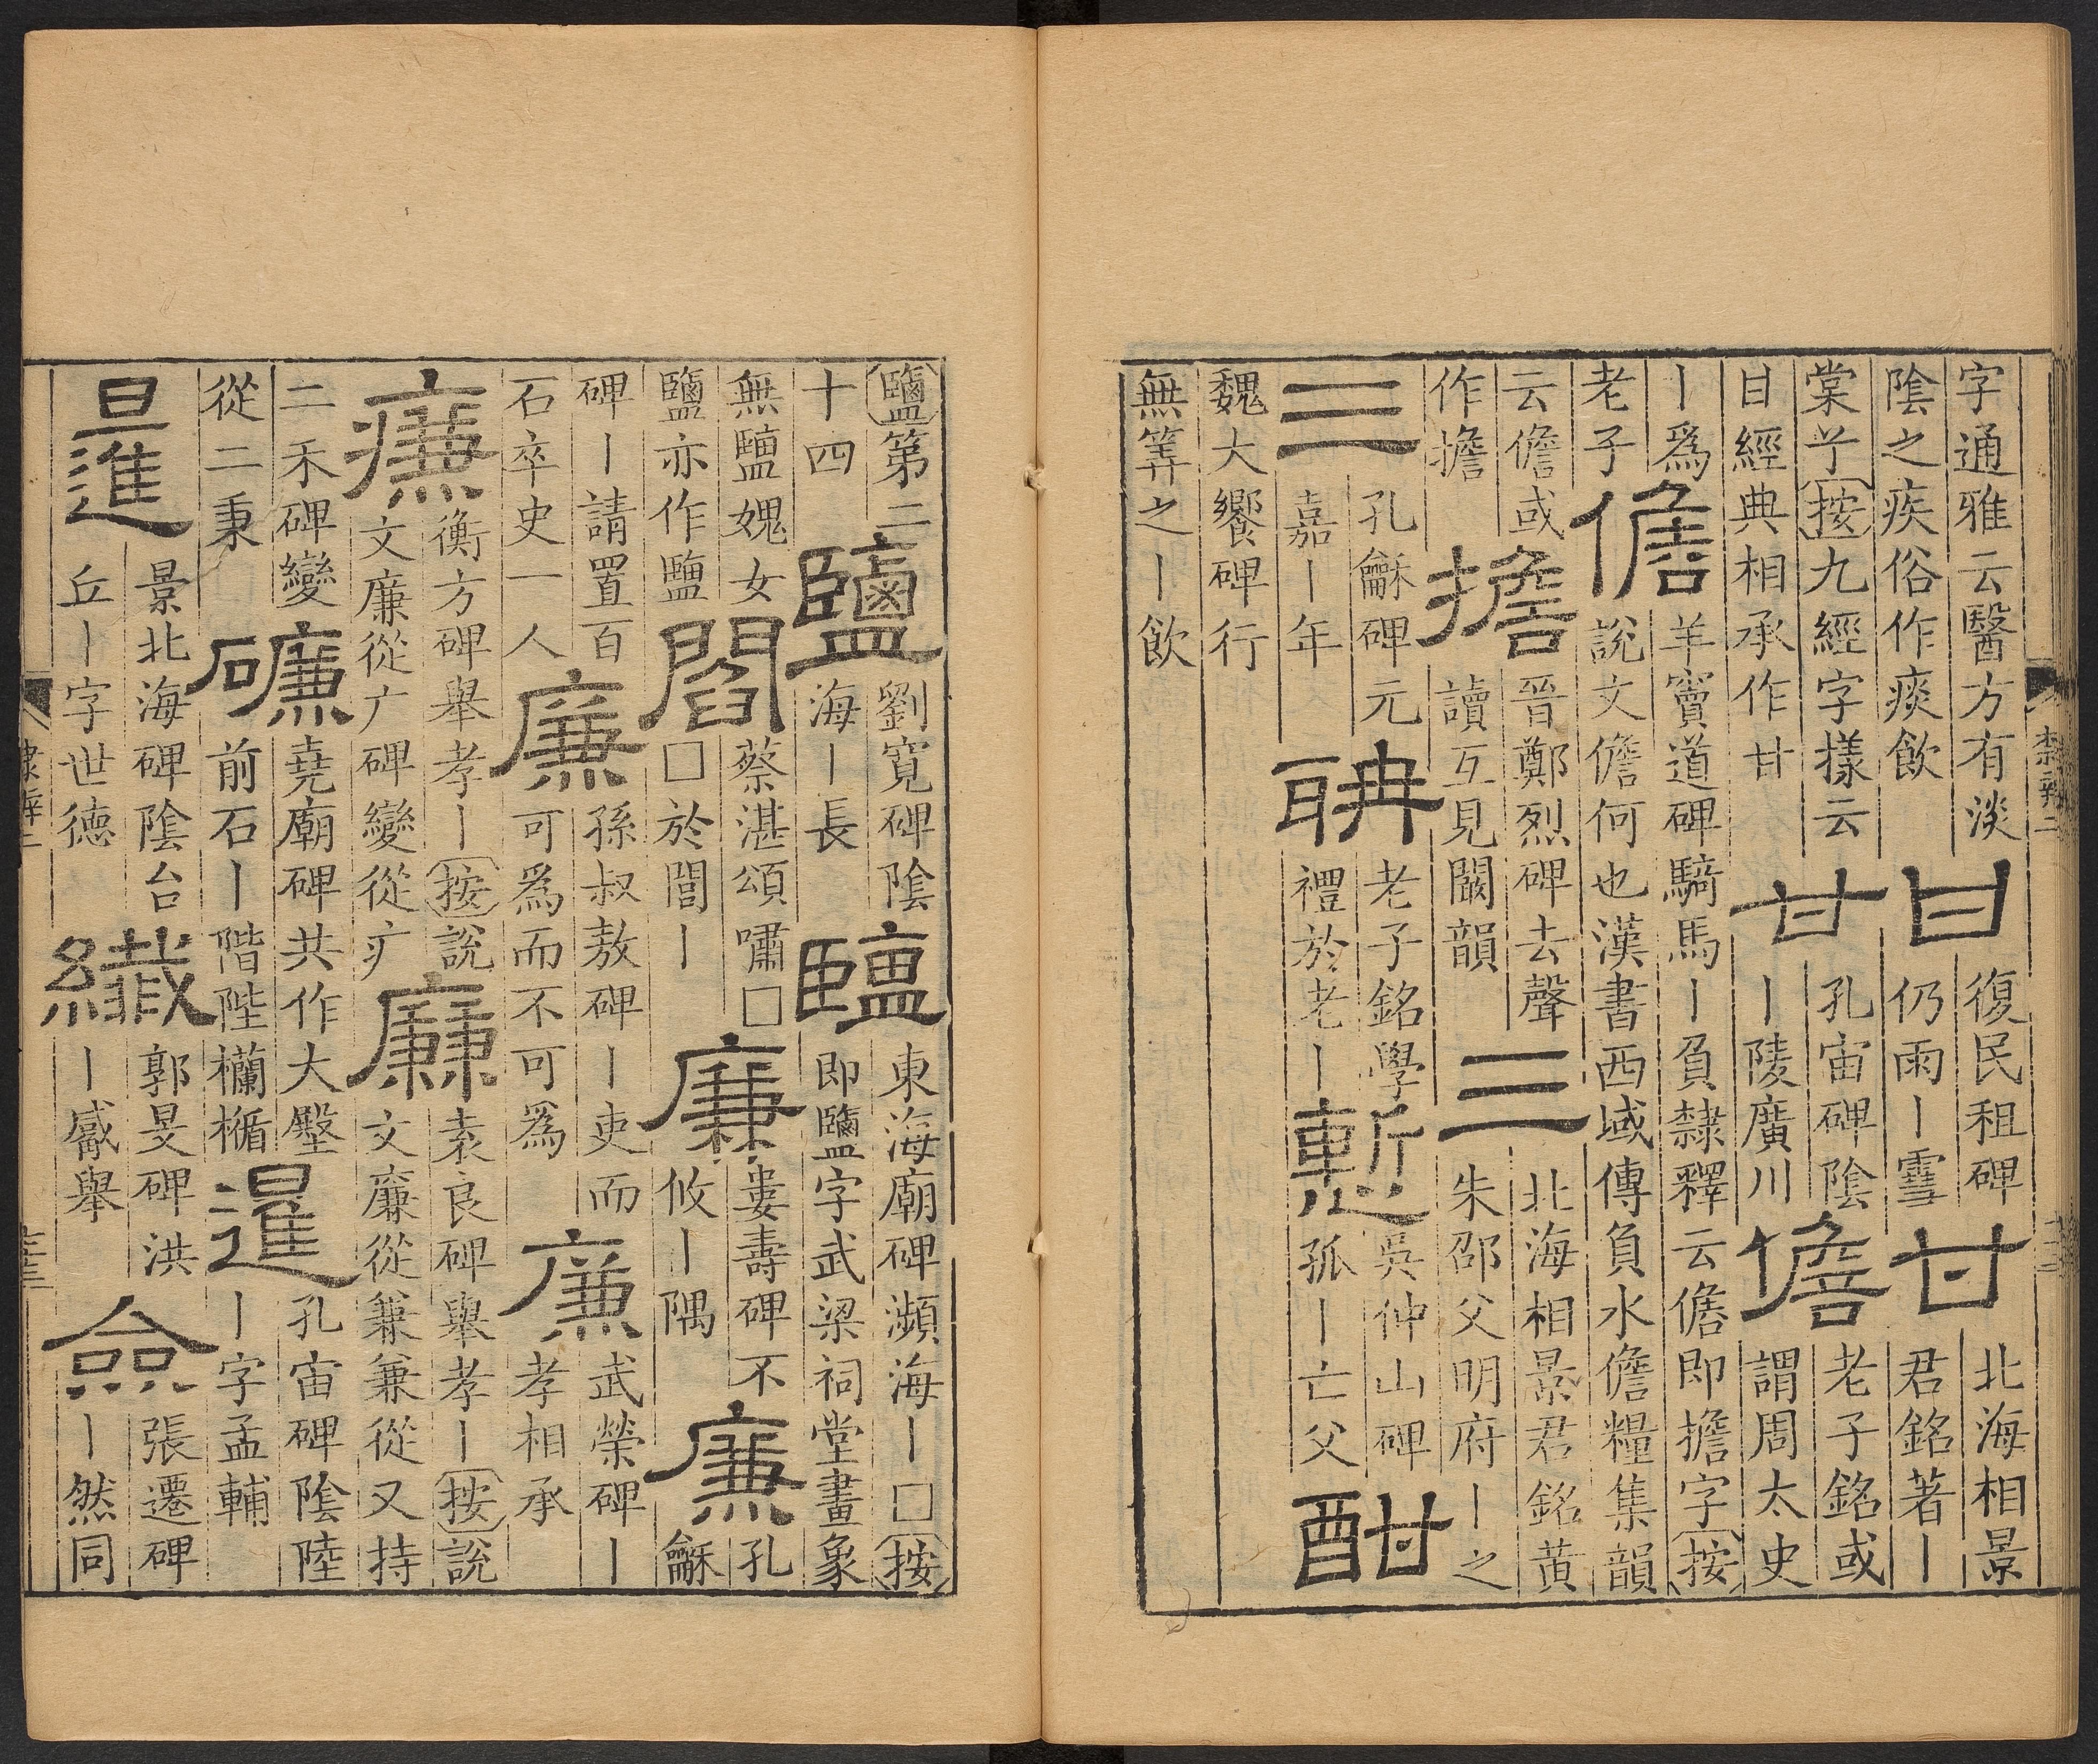 字通雅云醫方有淡
陰之疾俗作痰飲
甘
復民租碑
仍雨丨雪
甘
北海相景
君銘著丨
棠芐按九經字樣云
甘經典相承作甘
甘
孔宙碑陰
丨陵廣川
儋
老子銘或
謂周太史
丨爲
老子
儋
羊竇道碑騎馬丨負隸釋云儋即擔字按
說文儋何也漢書西域傳負水儋糧集韻
云儋或
作擔
擔
晉鄭烈碑去聲
讀互見闞韻
三
北海相景君銘黃
朱邵父明府丨之
三
孔龢碑元
嘉丨年
聃
老子銘學
禮於老丨
慙
吳仲山碑
孤丨亡父
酣
魏大饗碑行
無筭之丨飲
隸辨二
鹽第二
十四
鹽
劉寬碑陰
海丨長
塩
東海廟碑瀕海丨□按
即鹽字武梁祠堂畫象
無䀋媿女
鹽亦作䀋
閻
蔡湛頌嘯□
□於閭丨
廉
婁壽碑不
攸丨隅
廉
孔
龢
碑丨請置百
石卒史一人
廉
孫叔敖碑丨吏而
可爲而不可爲
廉
武榮碑丨
孝相承
廉
衡方碑舉孝丨按說
文廉從广碑變從疒
廉
袁良碑舉孝丨按說
文廉從兼兼從又持
二禾碑變
從二秉
磏
堯廟碑共作大殿
前石丨階陛欄楯
暹
孔宙碑陰陸
丨字孟輔
暹
景北海碑陰台
丘丨字世德
纎
郭旻碑洪
丨感舉
僉
張遷碑
丨然同